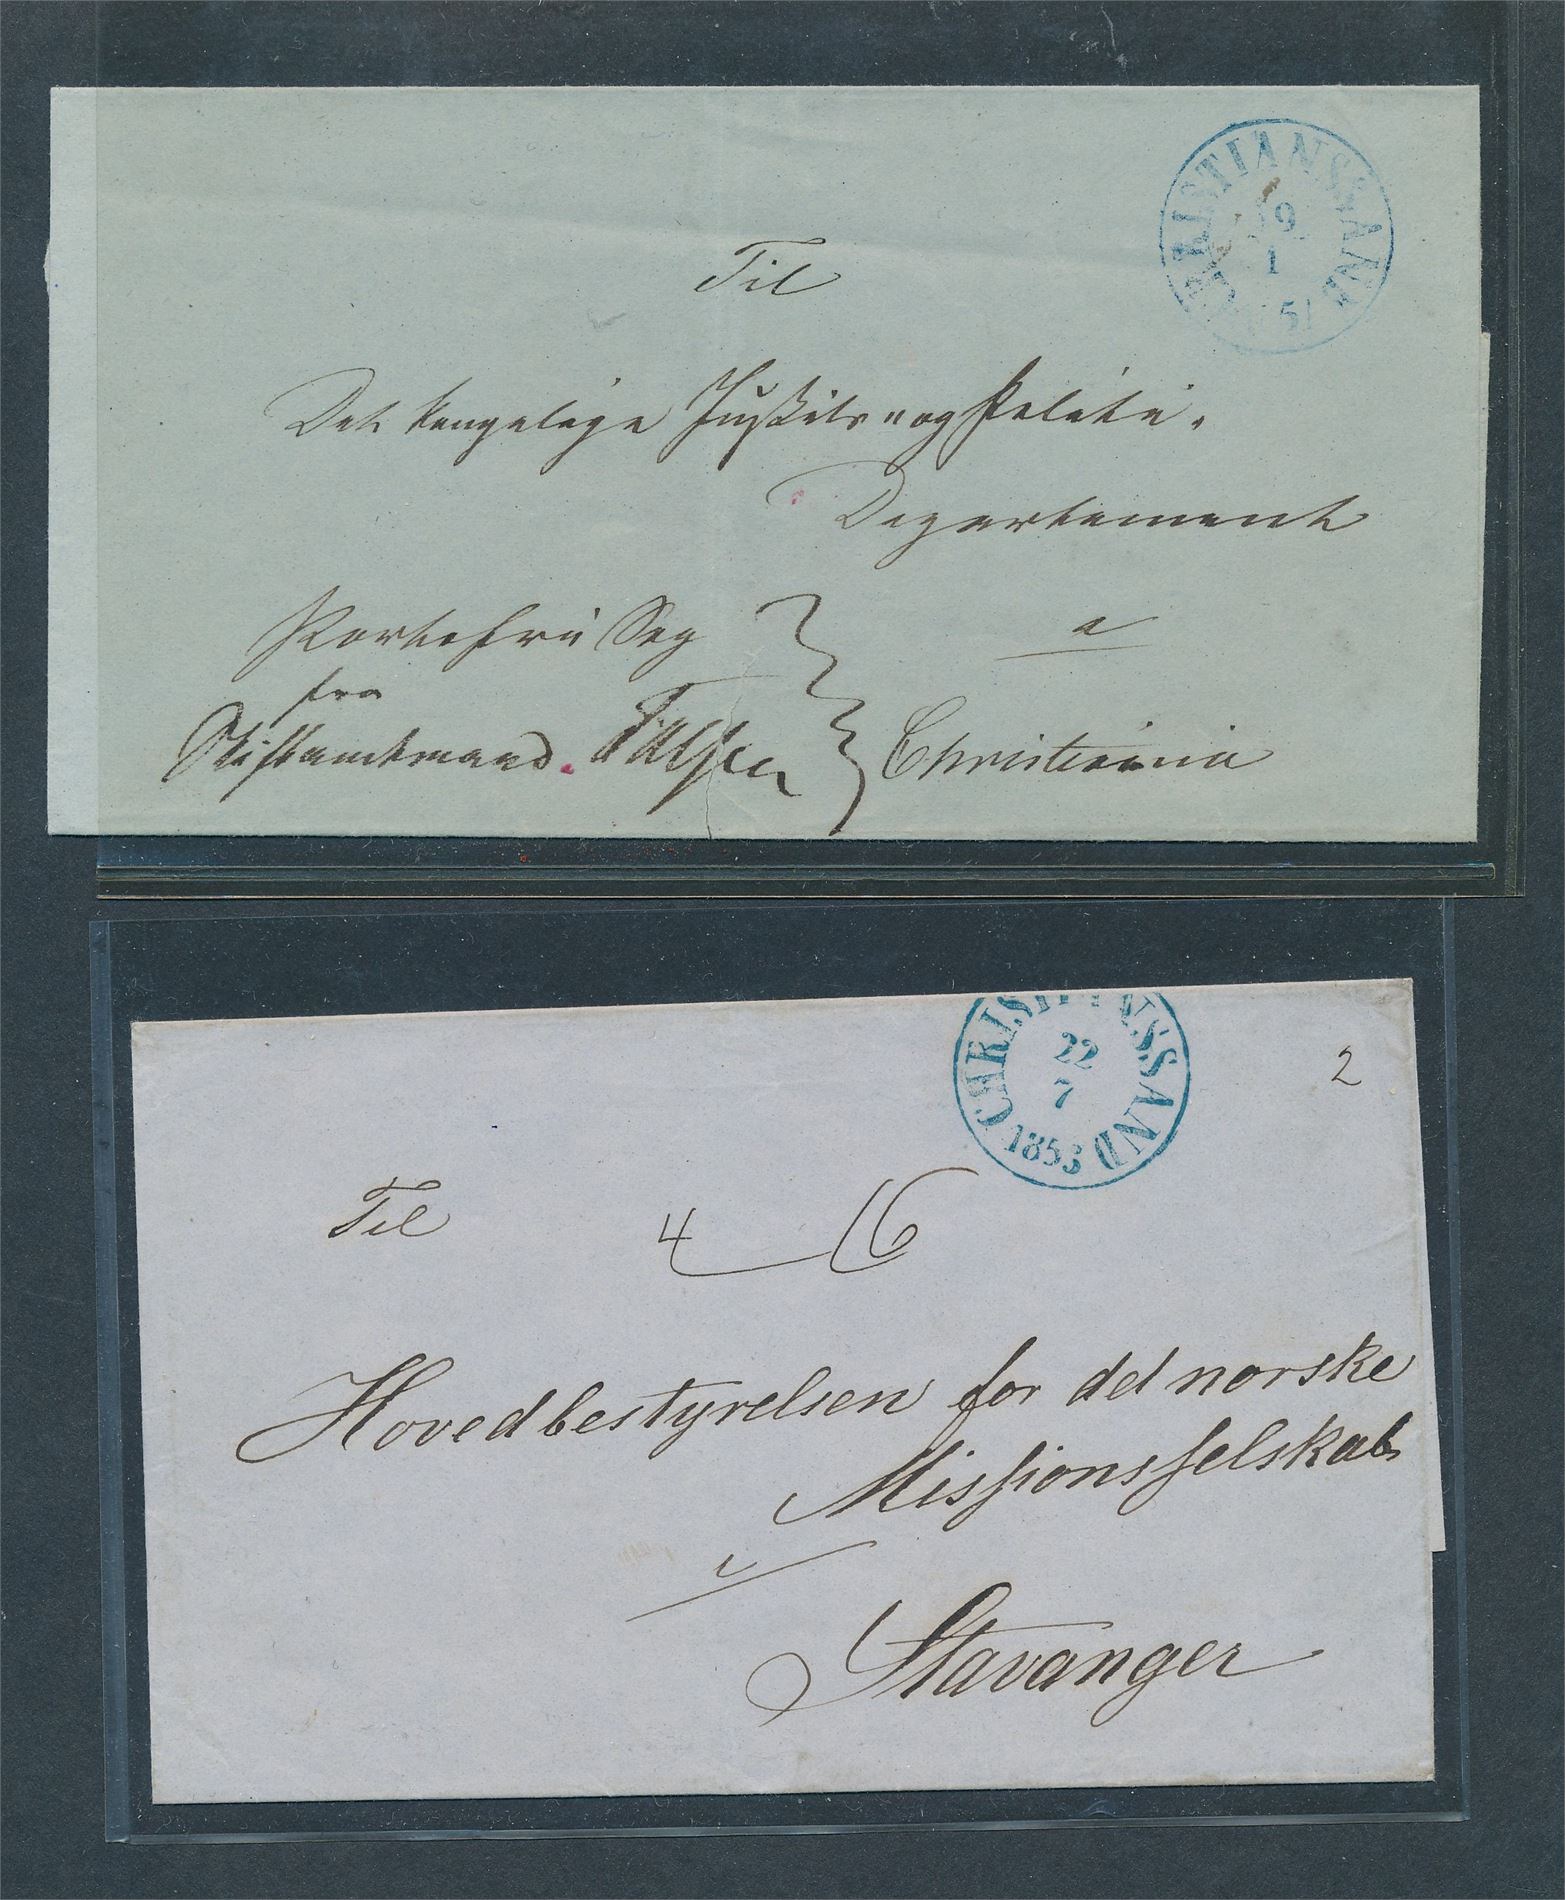 CHRISTIANSSAND
19
1
51
Til
Det kongelige Justits- og Politi-
Departement
Portofri Sag
a
fra
Stiftamtmand Falsen
Christiania
CHRISTIANSSAND
22
7
1853
2
Til
4 16
Hovedbestyrelsen for det norske
Missionsselskab
i
Stavanger